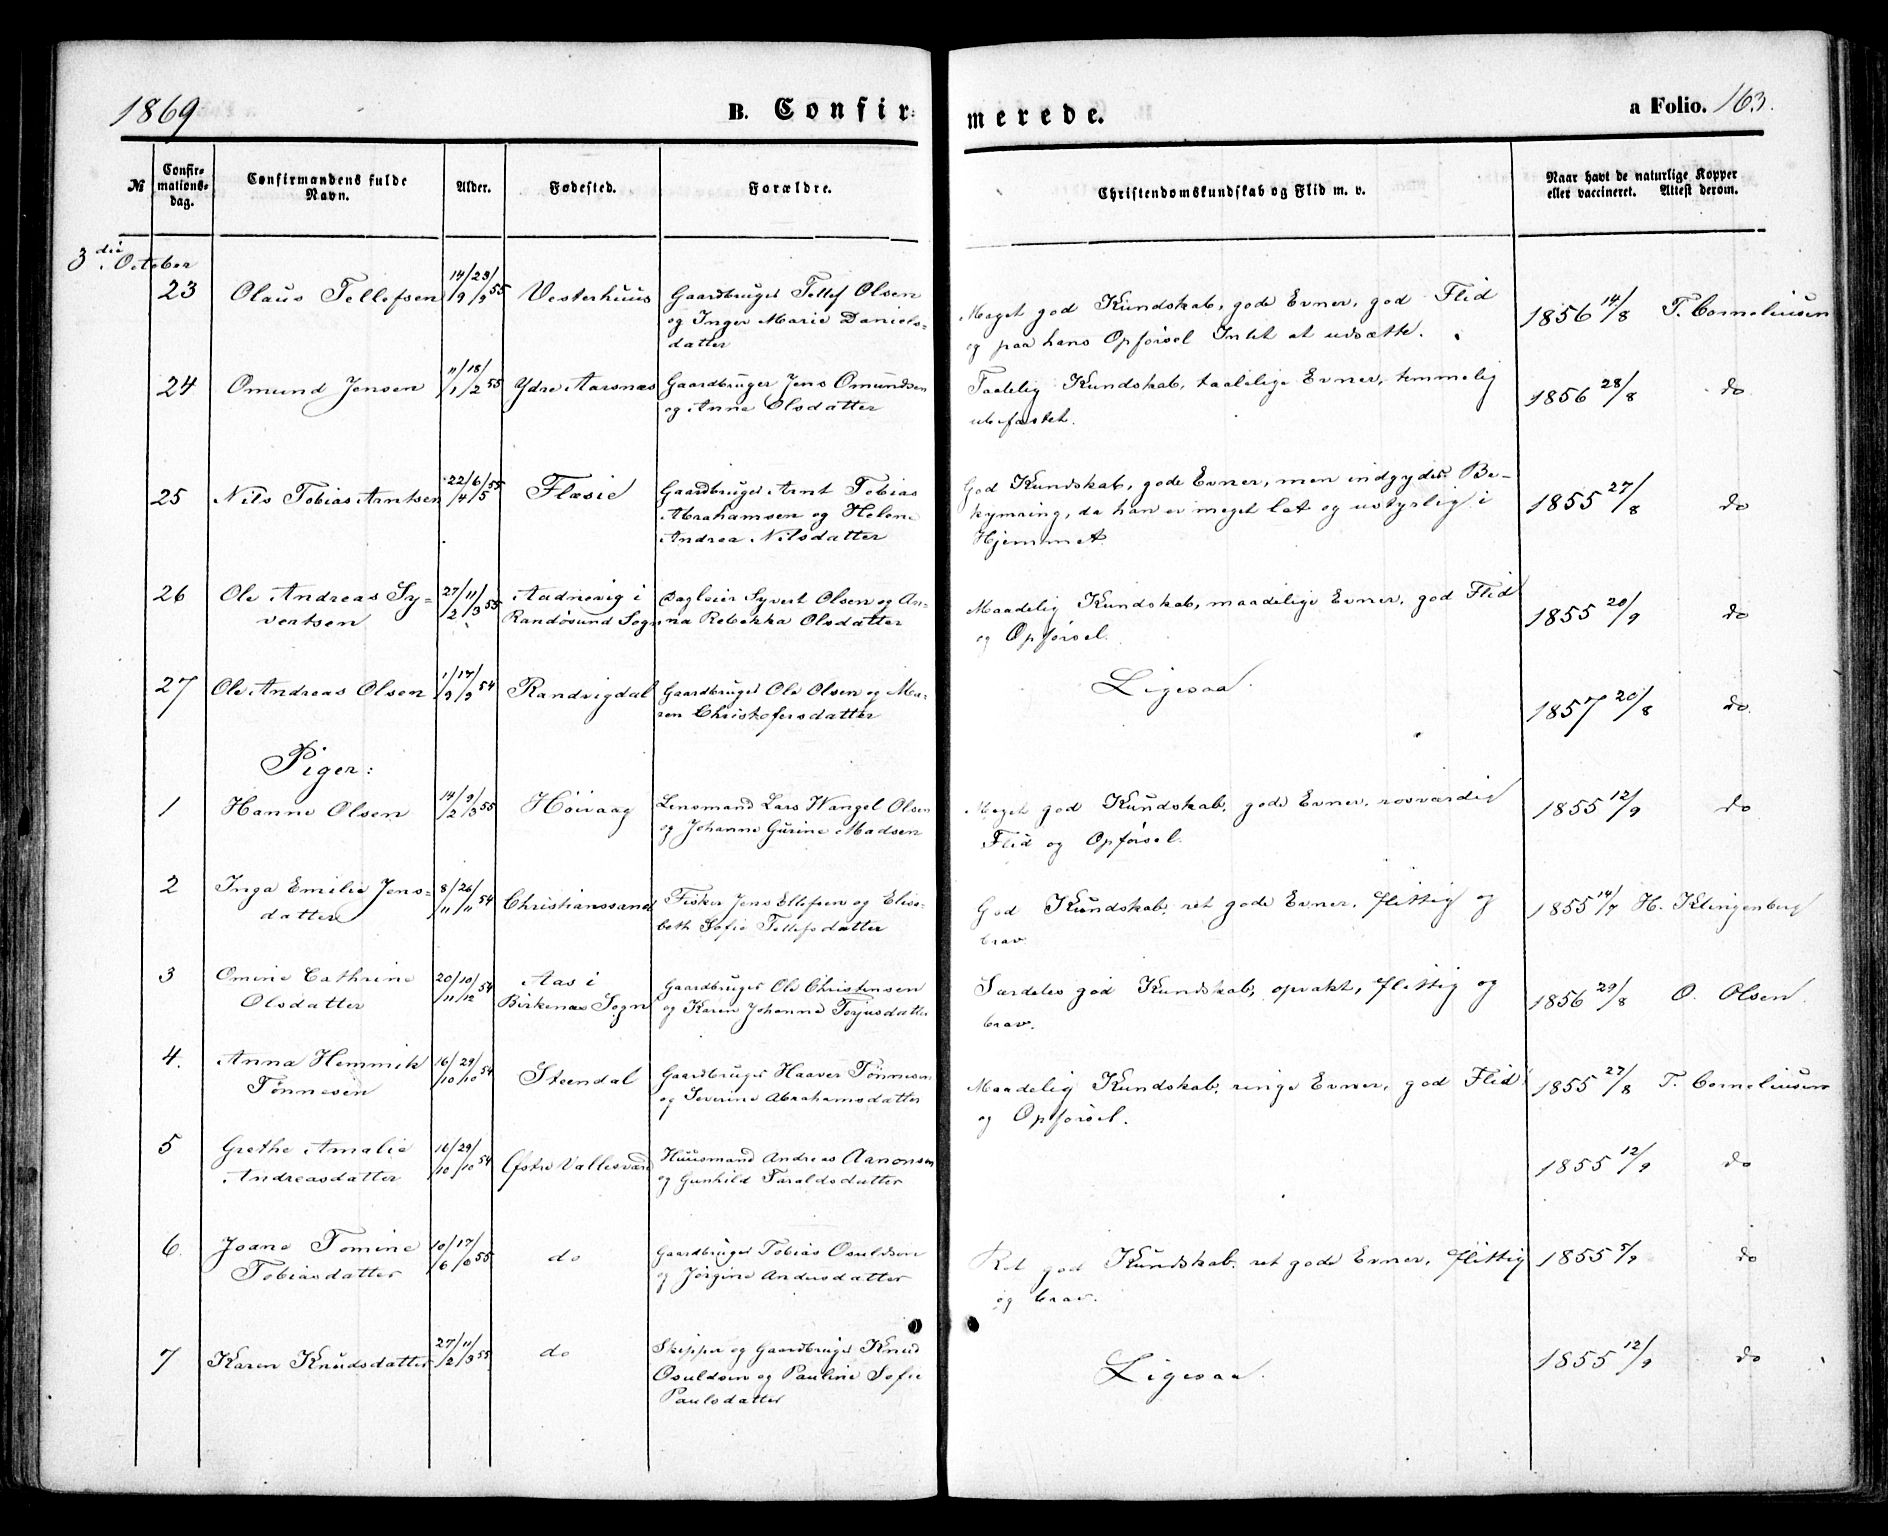 1869 B. Confir= merede. a Folio. 163.
№ Confir=mations=dag. Confirmandens fulde Navn. Alder. Fødested. Forældre. Christendomskundskab og Flid m. v. Naar havt de naturlige Kopper eller vaccineret. Attest derom.
3die October
23 Olaus Tellefsen 14/9 23/9 55 Vesterhuus Gaardbruger Tellef Olsen
og Inger Marie Daniels=
datter
Meget god Kundskab, gode Evner, god Flid
og paa hans Opførsel Intet at udsætte.
1856 14/8 T. Corneliusen
24 Omund Jensen 11/1 18/2 55 Ydre Aarsnæs Gaardbruger Jens Omundsen
og Anne Olsdatter
Taalelig Kundskab, taalelige Evner, temmelig
ubefæstet.
1856 28/8 do
25 Nils Tobias Arntsen 22/4 6/5 55 Flæsie Gaardbruger Arnt Tobias
Abrahamsen og Helene
Andrea Nilsdatter
God Kundskab, gode Evner, men indgyder Be=
kymring, da han er meget lat og ustyrlig i
Hjemmet.
1855 27/8 do
26 Ole Andreas Sy=
vertsen
27/2 11/3 55 Aadnevig i
Randøsund Sogn
Dagleier Syvert Olsen og An=
na Rebekka Olsdatter
Maadelig Kundskab, maadelige Evner, god Flid
og Opførsel.
1855 20/9 do
27 Ole Andreas Olsen 1/9 17/9 54 Randvigdal Gaardbruger Ole Olsen og Ma=
ren Christofersdatter
Ligesaa.
1857 20/8 do
Piger:
1 Hanne Olsen 14/2 9/3 55 Høivaag Lensmand Lars Wangel Olsen
og Johanne Gurine Madsen
Meget god Kundskab, gode Evner, rosværdig
Flid og Opførsel.
1855 12/9 do
2 Inga Emilie Jens=
datter
8/11 26/11 54 Christianssand Fisker Jens Ellefsen og Elisa=
beth Sofie Tellefsdatter
God Kundskab, ret gode Evner, flittig og
brav.
1855 14/7 H. Klingenberg
3 Omine Cathrine
Olsdatter
20/11 10/12 54 Aas i
Birkenæs Sogn
Gaardbruger Ole Christensen
og Karen Johanne Torjusdatter
Særdeles god Kundskab, opvakt, flittig og
brav.
1856 29/8 O. Olsen.
4. Anna Hemmik
Tønnesen
16/10 29/10 54 Steendal Gaardbruger Haaver Tønnesen
og Severine Abrahamsdatter
Maadelig Kundskab, ringe Evner, god Flid
og Opførsel.
1855 27/8 T. Corneliusen
5 Grethe Amalie
Andreasdatter
16/10 29/10 54 Østre Vallesværd Huusmand Andreas Aanonsen
og Gunhild Taraldsdatter
1855 12/9 do
6. Joane Tomine
Tobiasdatter
10/6 17/6 55 do Gaardbruger Tobias Osuldsen
og Jørgine Andersdatter
Ret god Kundskab, ret gode Evner, flittig
og brav.
1855 5/9 do
7 Karen Knudsdatter 27/2 11/3 55. do Skipper og Gaardbruger Knud
Osuldsen og Pauline Sofie
Paulsdatter
Ligesaa.
1855 12/9 do